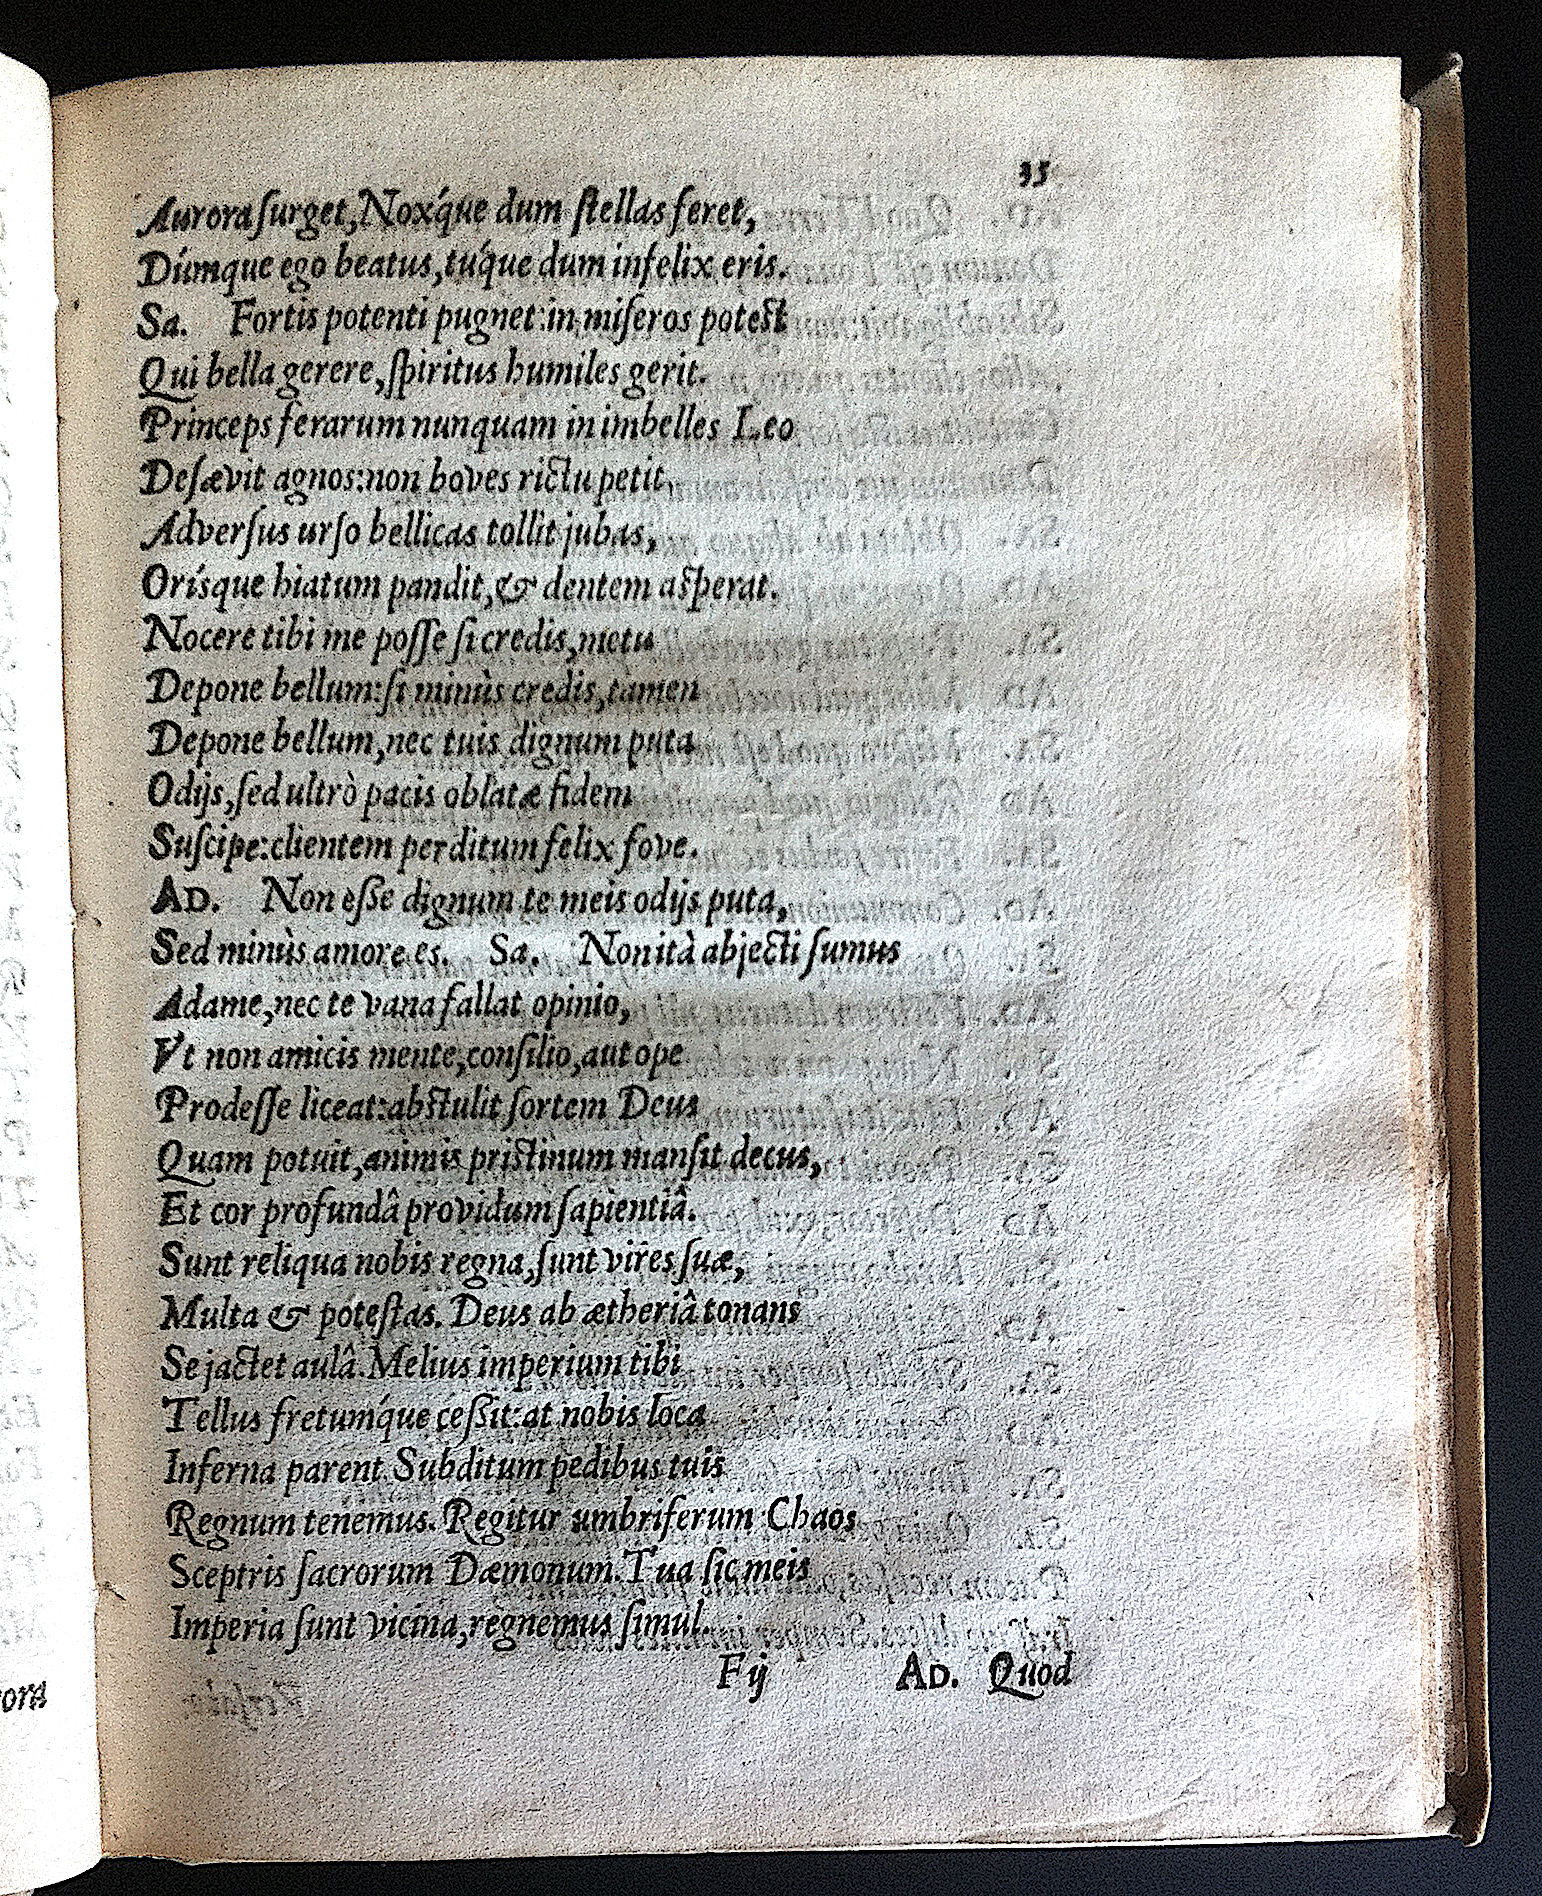 35
Aurora surget, Noxq́ue dum stellas feret,
Dúmque ego beatus, tuq́ue dum infelix eris.
Sa. Fortis potenti pugnet: in miseros potest
Qui bella gerere, spiritus humiles gerit.
Princeps ferarum nunquam in imbelles Leo
Desævit agnos: non boves rictu petit,
Adversus urso bellicas tollit jubas,
Orísque hiatum pandit, & dentem asperat.
Nocere tibi me posse si credis, metu
Depone bellum: si minùs credis, tamen
Depone bellum, nec tuis dignum puta
Odijs, sed ultrò pacis oblatæ fidem
Suscipe: clientem perditum felix fove.
AD. Non èsse dignum te meis odijs puta,
Sed minùs amore es. Sa. Non ità abjecti sumus
Adame, nec te vana fallat opinio,
Vt non amicis mente, consilio, aut ope
Prodesse liceat: abstulit sortem Deus
Quam potuit, animis pristinum mansit decus,
Et cor profundâ providum sapientiâ.
Sunt reliqua nobis regna, sunt vires suæ,
Multa & potestas. Deus ab ætheriâ tonans
Se jactet aulâ. Melius imperium tibi
Tellus fretumq́ue cessit: at nobis loca
Inferna parent. Subditum pedibus tuis
Regnum tenemus. Regitur umbriferum Chaos
Sceptris sacrorum Dæmonum. Tua sic meis
Imperia sunt vicina, regnemus simul.
Fij AD. Quod